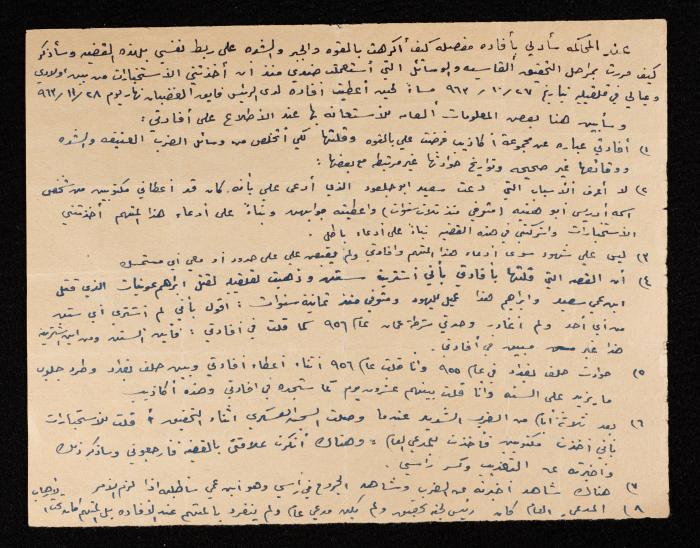 عند المحاكمه سأدلي بأفاده مفصله كيف أكرهت بالقوه والجبر والشده على ربط نفسي بهذه القضيه وسأذكر
كيف مررت بمراحل التحقيق القاسيه والوسائل التي أستعملت ضدي منذ ان أخذتني الأستخبارات من بين أولادي
وعيالي في قلقيليه بتاريخ ٢٧/١٠/٩٦٣ مساءً لحين أعطيت افاده لدى الرئيس نهار يوم ٢٨/١١/٩٦٣
وسأبين هنا بعض المعلومات ألهامه للأستعانه بها عند الأطلاع على أفادتي:
١) أفادتي عباره عن مجموعة أكاذيب فرضت علي بالقوه وقلتها لكي أتخلص من وسائل الضرب العنيفه والشده
ووقائعها غير صحيحه وتواريخ حوادثها غير مرتبطه مع بعضها:
٢) لا أعرف الأسباب التي دعت سعيد ابو جلعود الذي أدعى علي بأنه كان قد أعطاني مكتوبين من شخص
اسمه أدريس ابو هنيه (متوفي منذ ثلاث سنوات) وأعطيته جوابين وبناءً على أدعاء هذا المتهم أخذتني
الأستخبارات وأشركتني في هذه القضيه بناءً على أدعاء باطل.
٣) ليس علي شهود سوى أدعاء هذا المتهم وافادتي ولم يقبض علي على حدود أو معي أي مستمسك
٤) أن القصه التي قلتها بأفادتي بأني أشتريت ستن وذهبت لقلقيليه لقتل ابراهيم الذي قتل
ابن عمي سعيد وابراهيم هذا عميل لليهود ومتوفي منذ ثمانية سنوات: أقول بأني لم أشتري أي ستن
من أي أحد ولم أغادر وحدتي شرطة عمان عام ٩٥٦ كما قلت في أفادتي: فأين الستن ومن اين أشتريته
هذا غير مبين في أفادتي.
٥) حوادث حلف بغداد في عام ٩٥٥ وانا قلت عام ٩٥٦ أثناء أعطاء أفادتي وبين حلف بغداد وطرد جلوب
ما يزيد على السنه وانا قلت بينهم عشرون يوم كما ستجده في افادتي وهذه أكاذيب
٦) بعد ثلاثة أيام من الضرب الشديد عندما وصلت السجن العسكري أثناء التحقيق قلت للأستخبارات
بأني أخذت مكتوبين فأخذت للمدعي العام وهناك أنكرت علاقتي بالقضيه فأرجعوني وسأذكر ذلك
وأخبرته عن التعذيب وكسر رأسي.
٧) هناك شاهد أخبرته عن الضرب وشاهد الجروح في رأسي وهو أبن عمي سأطلبه اذا لزم الأمر
٨) المدعي العام كان رئيس لجنة تحقيق ولم يكن مدعي عام ولم ينفرد بالمتهم عند الأفاده بل المتهم كان تحت الأرهاب